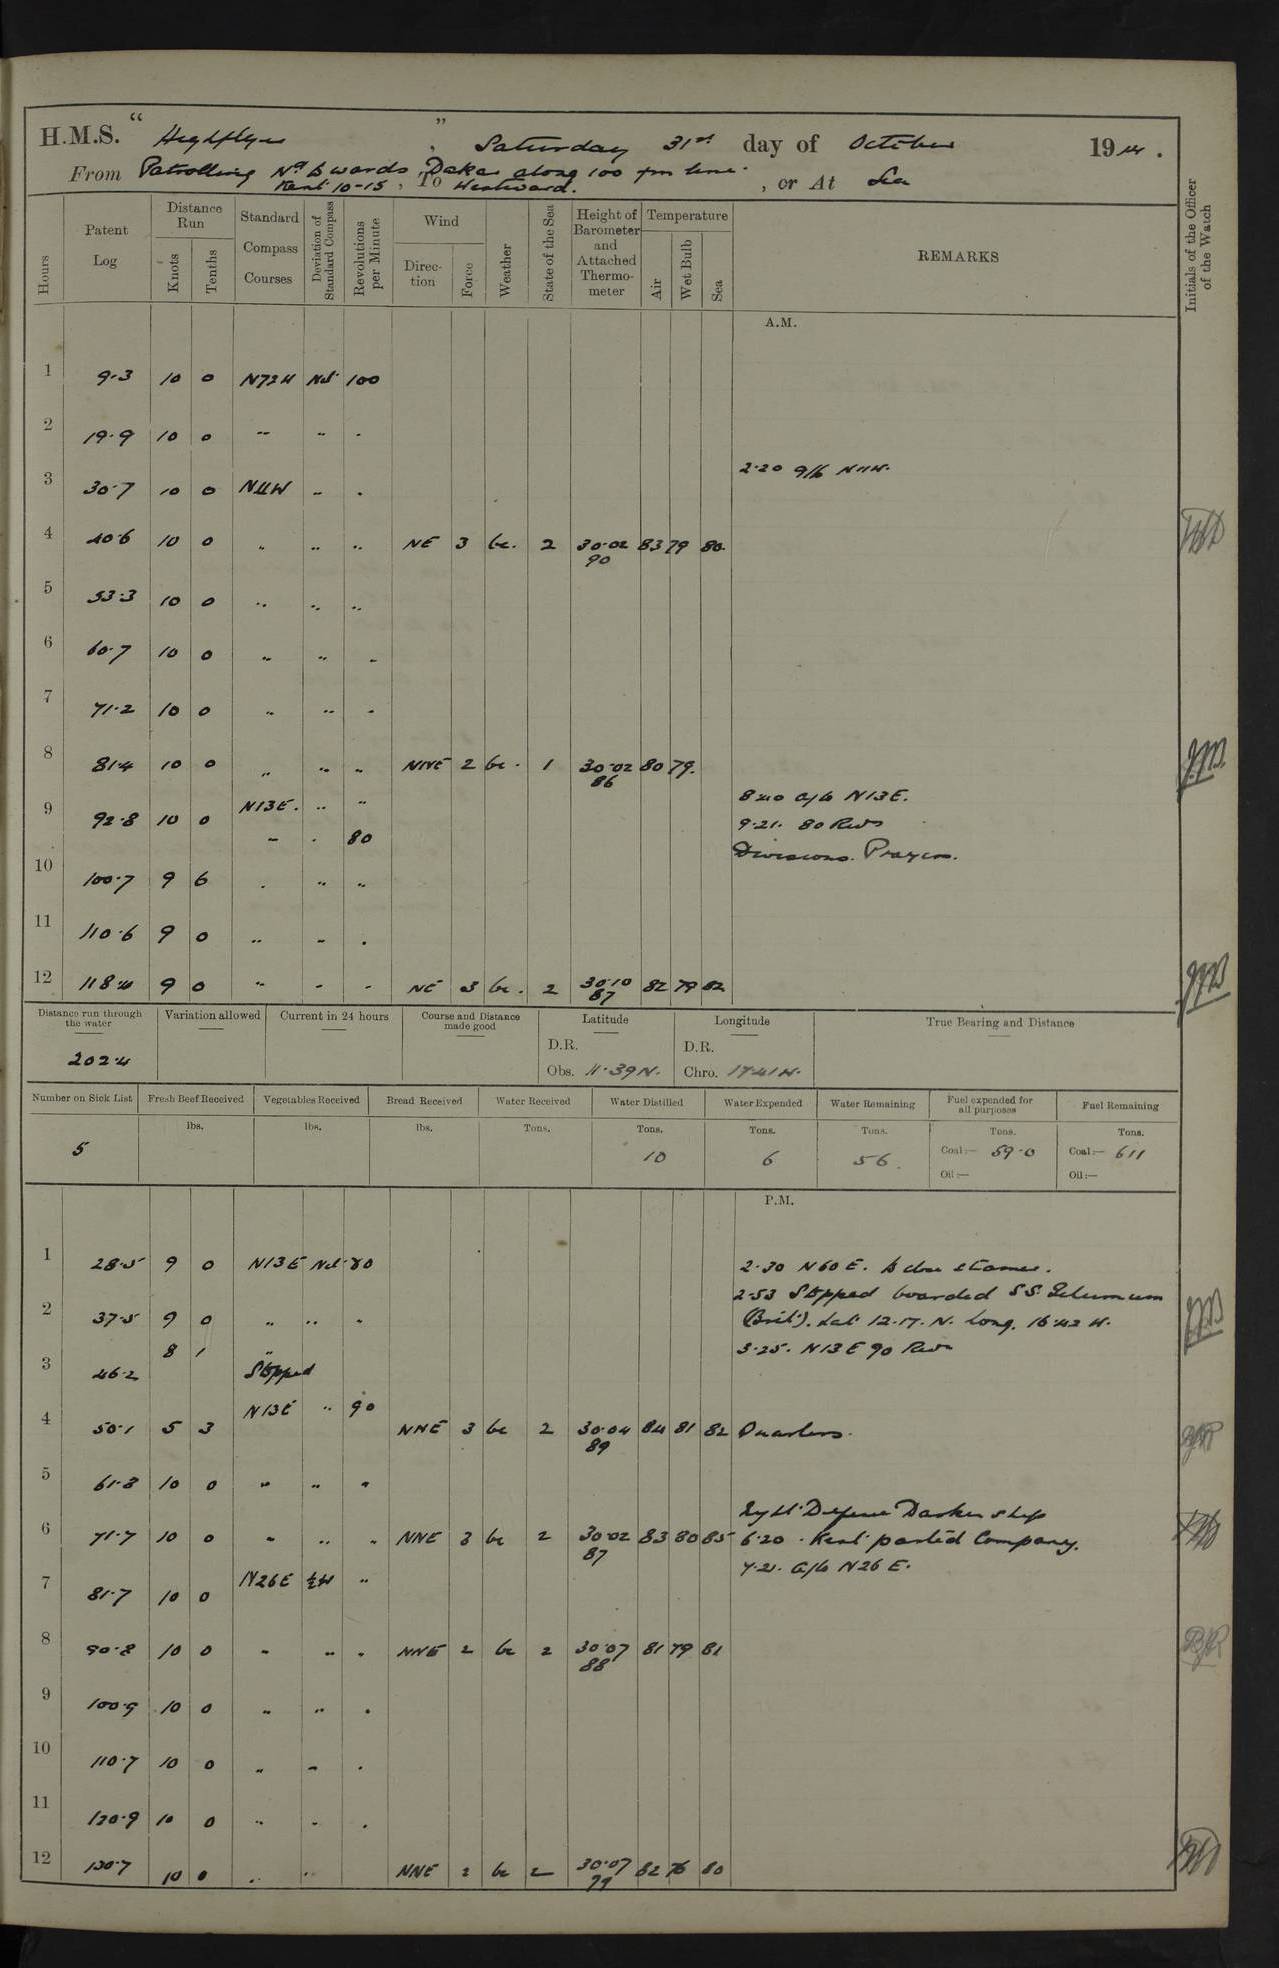 H.M.S. " Highflyer ", Saturday 31st day of October 1914.
From Patrolling Nd towards, To Dakar along 100 fm line. , or At Sea
Kent 10-15 Westward.
Hours
Patent Log
Distance Run
Knots
Tenths
Standard Compass Courses
Deviation of Standard Compass
Revolutions per Minute
Wind
Direction
Force
Weather
State of the Sea
Height of Barometer and Attached Thermometer
Temperature
Air
Wet Bulb
Sea
REMARKS
Initials of the Officer of the Watch
A.M.
1 9.3 10 0 N72W Nil 100
2 19.9 10 0 " " "
2.20 a/c N11W.
3 30.7 10 0 N11W " "
4 40.6 10 0 " " " NE 3 bc. 2 30.02 83 79 80
90
5 53.3 10 0 " " "
6 60.7 10 0 " " "
7 71.2 10 0 " " "
8 81.4 10 0 " " " NNE 2 bc. 1 30.02 80 79.
86
8.40 a/c N13E.
9 92.8 10 0 N13E. " "
9.21. 80 Revs
" " 80
Divisions. Prayers.
10 100.7 9 6 " " "
11 110.6 9 0 " " "
12 118.4 9 0 " " " NE 3 bc. 2 30.10 82 79 82
87
Distance run through the water
Variation allowed
Current in 24 hours
Course and Distance made good
Latitude
Longitude
True Bearing and Distance
202.4
D.R.
D.R.
Obs. 11.39N.
Chro. 17.41W.
Number on Sick List
Fresh Beef Received
Vegetables Received
Bread Received
Water Received
Water Distilled
Water Expended
Water Remaining
Fuel expended for all purposes
Fuel Remaining
lbs. lbs. lbs. Tons. Tons. Tons. Tons. Tons. Tons.
5 10 6 56. Coal:— 59.0 Coal:— 611
Oil:— Oil:—
P.M.
1 28.5 9 0 N13E Nil 80
2.30 N60E. to close steamer.
2.53 Stopped boarded S.S.
2 37.5 9 0 " " "
(Brit). Lat 12.17.N. Long. 16.42 W.
8 1 "
3.25. N13E 90 Revs
3 46.2 Stopped
N13E " 90
4 50.1 5 3 NNE 3 bc 2 30.04 84 81 82 Quarters.
89
5 61.8 10 0 " " "
Darken ship
6 71.7 10 0 " " " NNE 3 bc 2 30.02 83 80 85 6.20. Kent parted Company.
87
7.21. a/c N26E.
N26E ½W "
7 81.7 10 0
8 90.8 10 0 " " " NNE 2 bc 2 30.07 81 79 81
88
9 100.9 10 0 " " "
10 110.7 10 0 " " "
11 120.9 10 0 " " "
12 130.7 10 0 " " NNE 2 bc 2 30.07 82 76 80